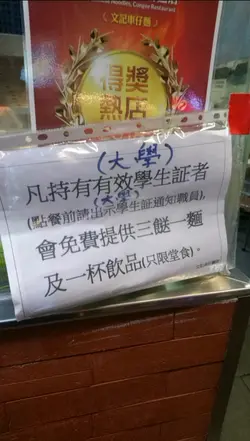 Noodles, Congee Restaurant
( 文記車仔麵 )
得獎
熱店
(大學)
凡持有有效學生証者
(大學)
(點餐前請出示學生証通知職員),
會免費提供三餸一麵
及一杯飲品(只限堂食)。